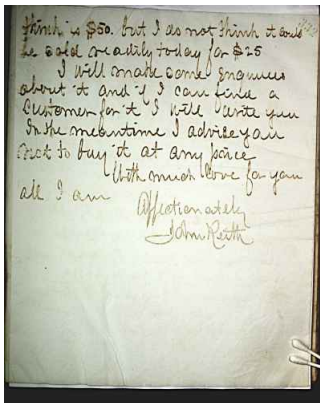 think is $50. but I do not think it could
be sold readily today for $25
I will make some inquiries
about it and if I can find a
customer for it I will write you
In the meantime I advise you
not to buy it at any price
With much love for you
all I am
Affectionately
John Keith